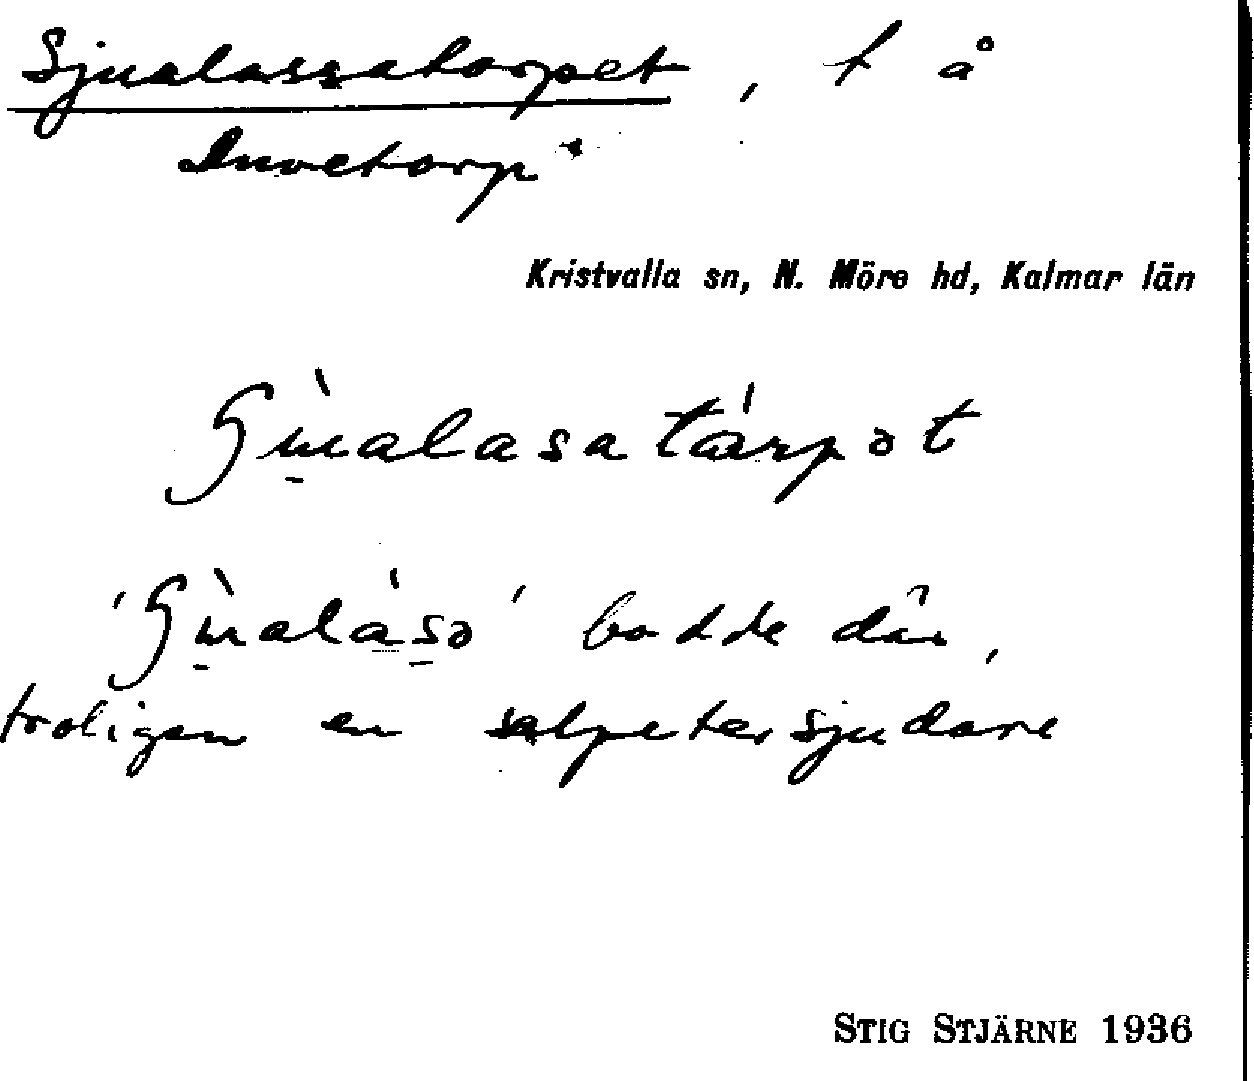 Sjualassatorpet, t å
Duvetorp
Kristvalla sn, N. Möre hd, Kalmar län
bodde där,
troligen en salpetersjudare
STIG STJÄRNE 1936